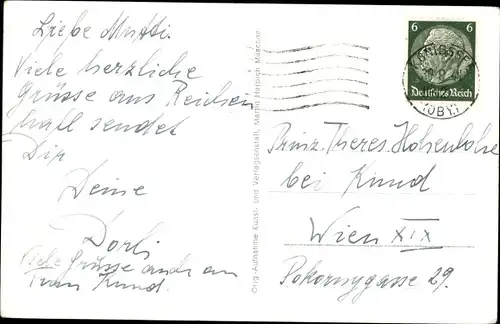 Liebe Mutti.
Viele herzliche
Grüsse aus Reichen
hall sendet
Dir
Deine
Dorli
Viele Grüsse auch an
Frau Knud.
Orig.-Aufnahme Kunst- und Verlagsanstalt, Martin Herpich, München
6 6
Deutsches Reich
(OBY.)
Prinz. Theres. Hohenlohe
bei Knud
Wien XIX
Pokornygasse 29.